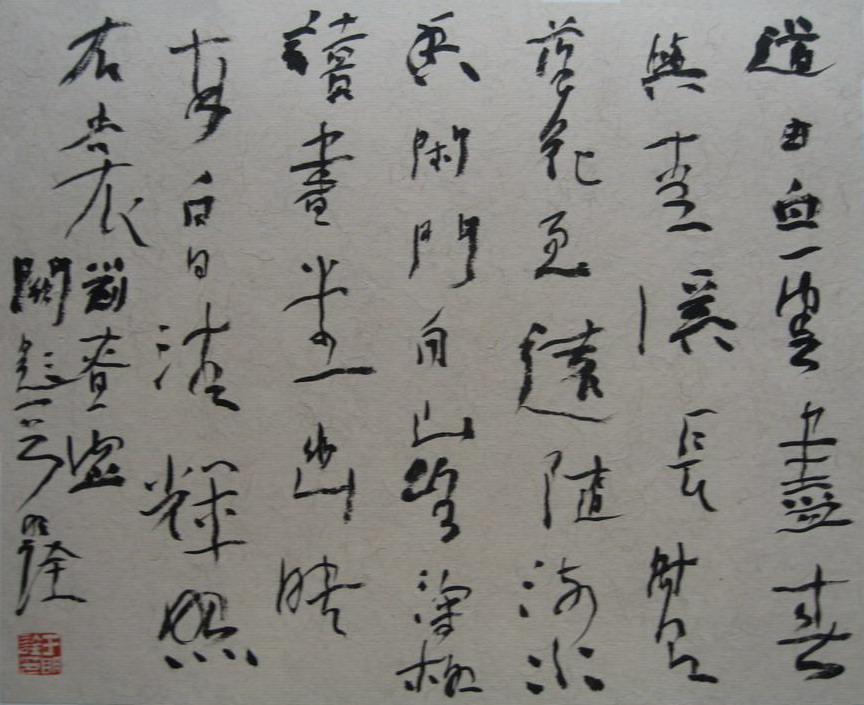 道由白雲盡春
與青溪長時有
落花至遠隨流水
香閑門向山路深柳
讀書堂幽映
每白日清輝照
衣裳 劉眘虛
闕題一首 明詮